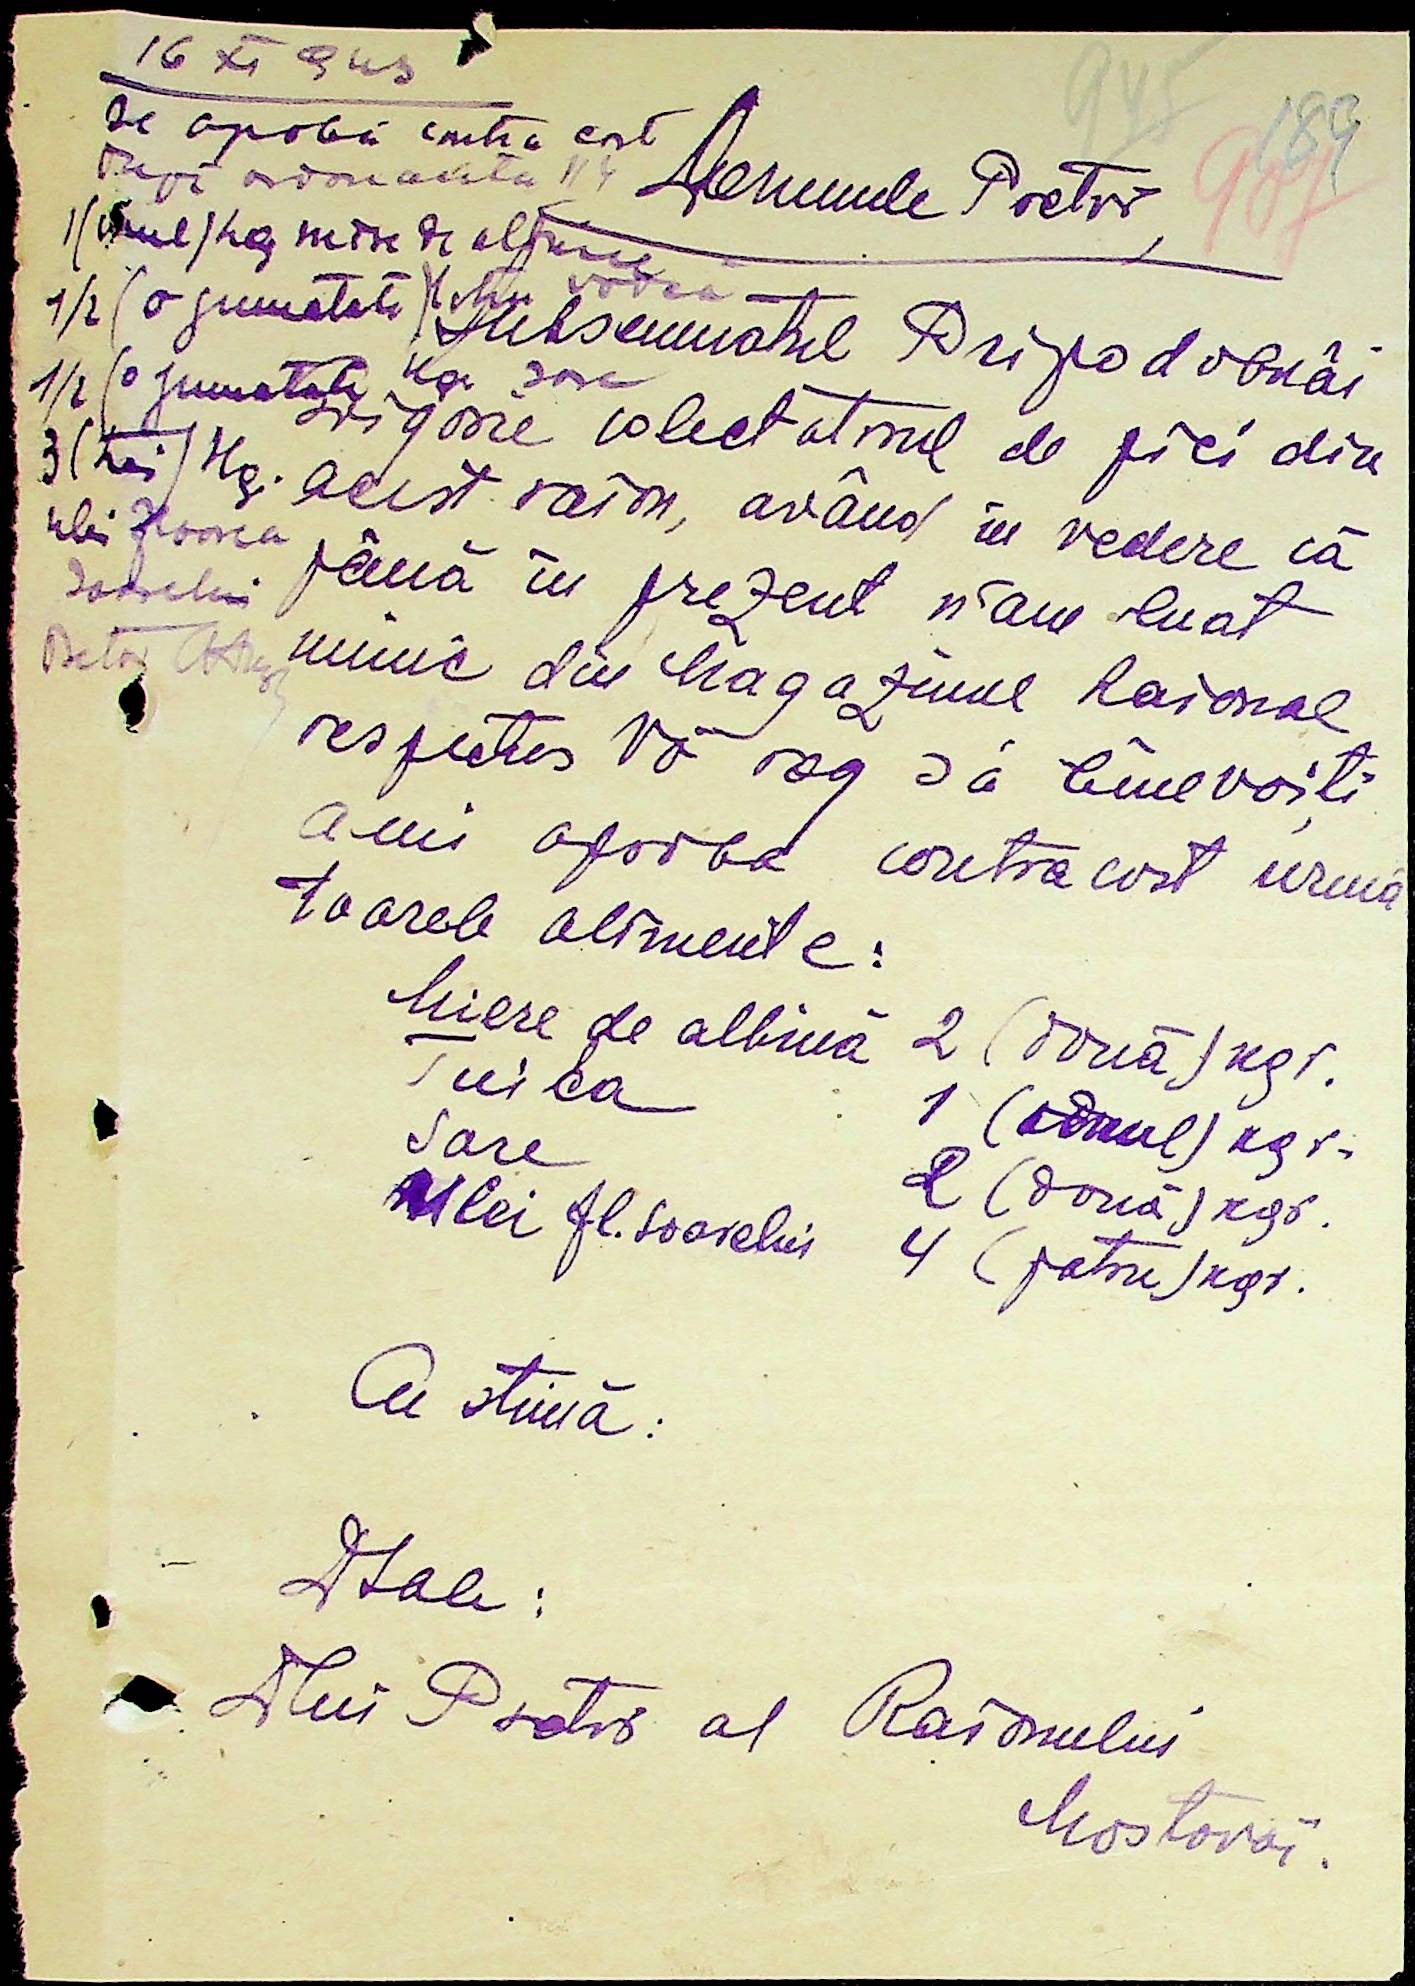 945
189
907
16 XI 943
Se aprobă contra cost
după ordonanta 114
1 (unul) kg miere de albine
1/2 (o jumătate) litru vodcă
1/2 (o jumatate kg sare
3 (trei) Kg.
ulei floarea
soarelui
Pretor
Domnule Pretor,
Subsemnatul Pripodobnâi
Grigorie colectatorul de piei din
acest raion, având în vedere că
până în prezent n'am luat
nimic din Magazinul Raional
respectuos Vă rog să binevoiţi
ami aproba contra cost urmă
toarele alimente:
Miere de albină 2 (două) kgr.
Tuica 1 (unul) kgr.
Sare 2 (două) kgr.
Ulei fl. soarelui 4 (patru) kgr.
Cu stimă:
DSale:
Dlui Pretor al Raionului
Mostovoi.